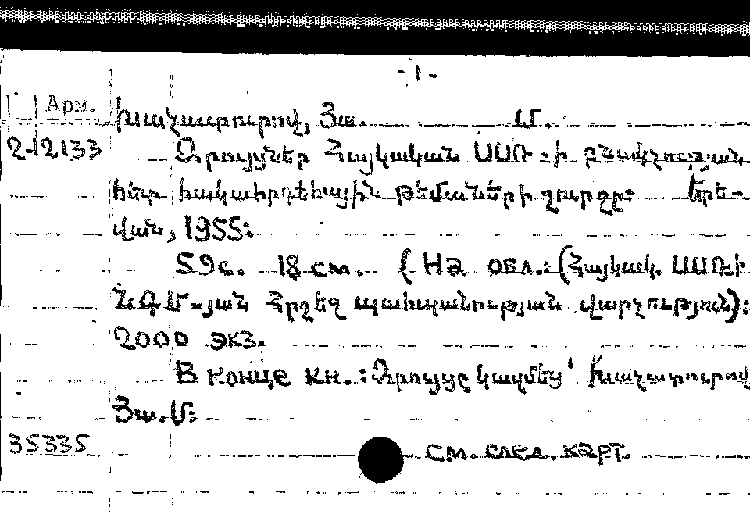 - 1 -
Арм.
Խաչատուրով, Յա. Մ.
2-12133 Զրույցներ Հայկական ՍՍՌ-ի բնակչության
հետ հակահրդեհային թեմաների շուրջը: Երե-
վան, 1955:
59с. 18 см. (На обл.: (Հայկակ. ՍՍՌ-ի
ՆԳՄ-յան Հրշեջ պահպանության վարչություն):
2000 экз.
В конце кн.: Զրույցը կազմեց՝ Խաչատուրով
Յա. Մ:
35335 см. след. карт.